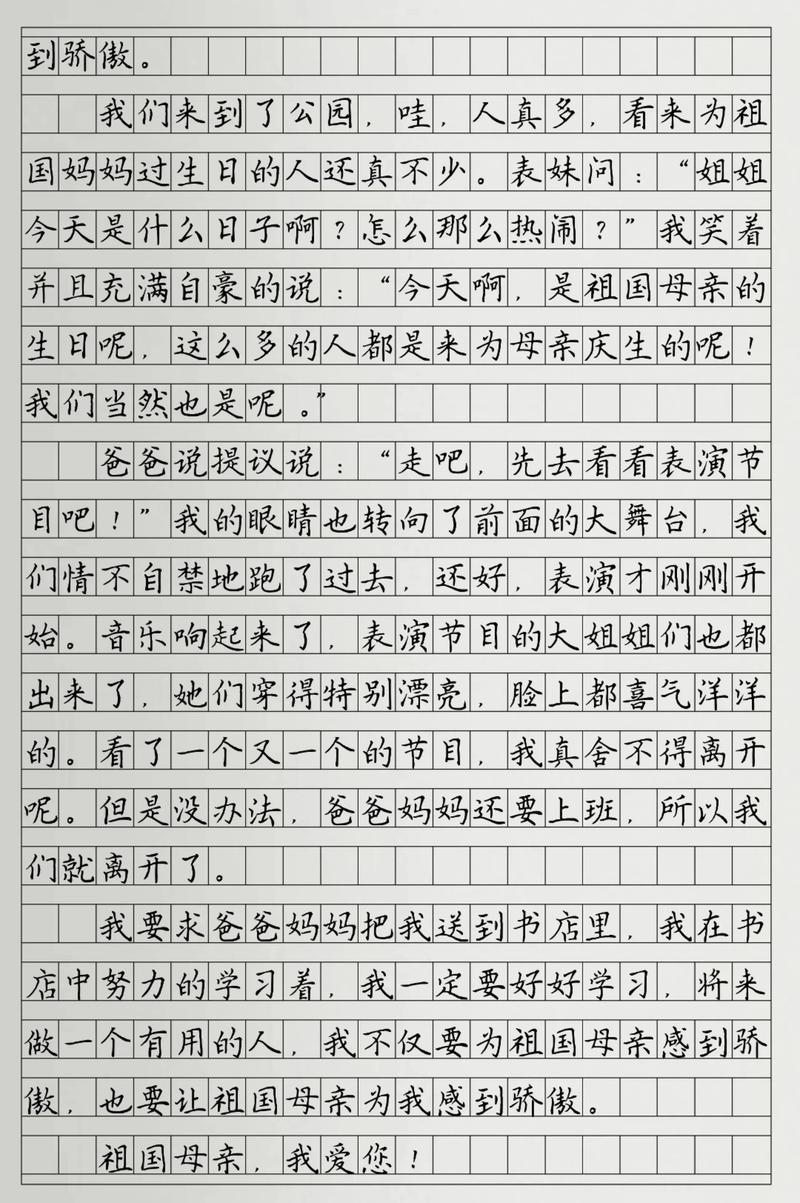 到骄傲。
我们来到了公园，哇，人真多，看来为祖
国妈妈过生日的人还真不少。表妹问：“姐姐
今天是什么日子啊？怎么那么热闹？”我笑着
并且充满自豪的说：“今天啊，是祖国母亲的
生日呢，这么多的人都是来为母亲庆生的呢！
我们当然也是呢。”
爸爸说提议说：“走吧，先去看看表演节
目吧！”我的眼睛也转向了前面的大舞台，我
们情不自禁地跑了过去，还好，表演才刚刚开
始。音乐响起来了，表演节目的大姐姐们也都
出来了，她们穿得特别漂亮，脸上都喜气洋洋
的。看了一个又一个的节目，我真舍不得离开
呢。但是没办法，爸爸妈妈还要上班，所以我
们就离开了。
我要求爸爸妈妈把我送到书店里，我在书
店中努力的学习着，我一定要好好学习，将来
做一个有用的人，我不仅要为祖国母亲感到骄
傲，也要让祖国母亲为我感到骄傲。
祖国母亲，我爱您！